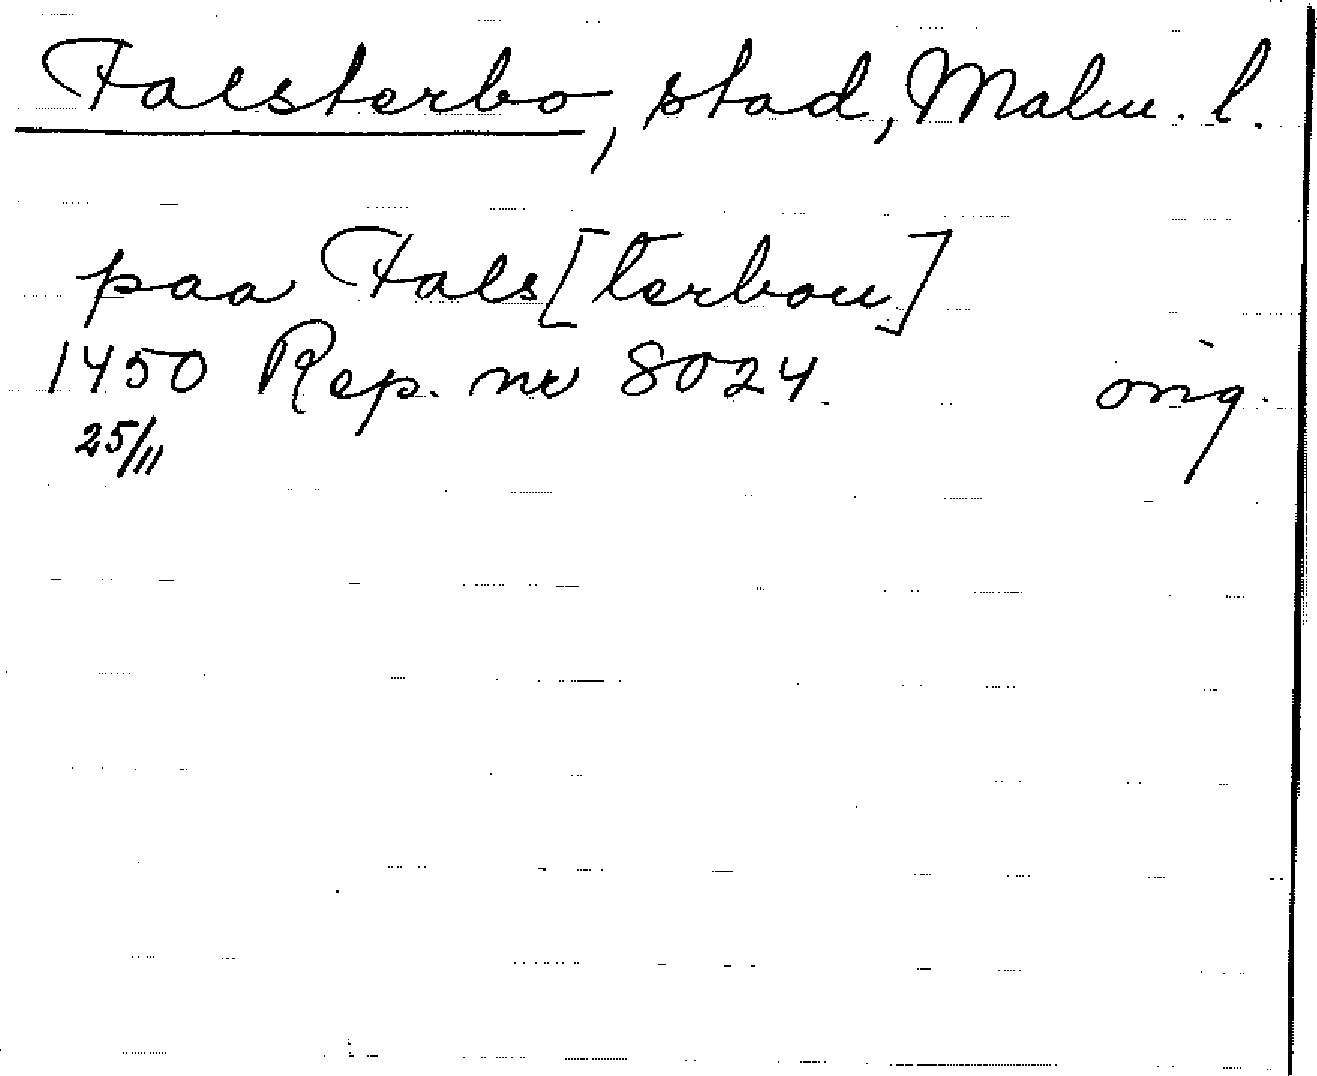 Falsterbo, stad, Malm. l.
paa Fals[terbou]
1450 Rep. nr 8024. orig.
25/11